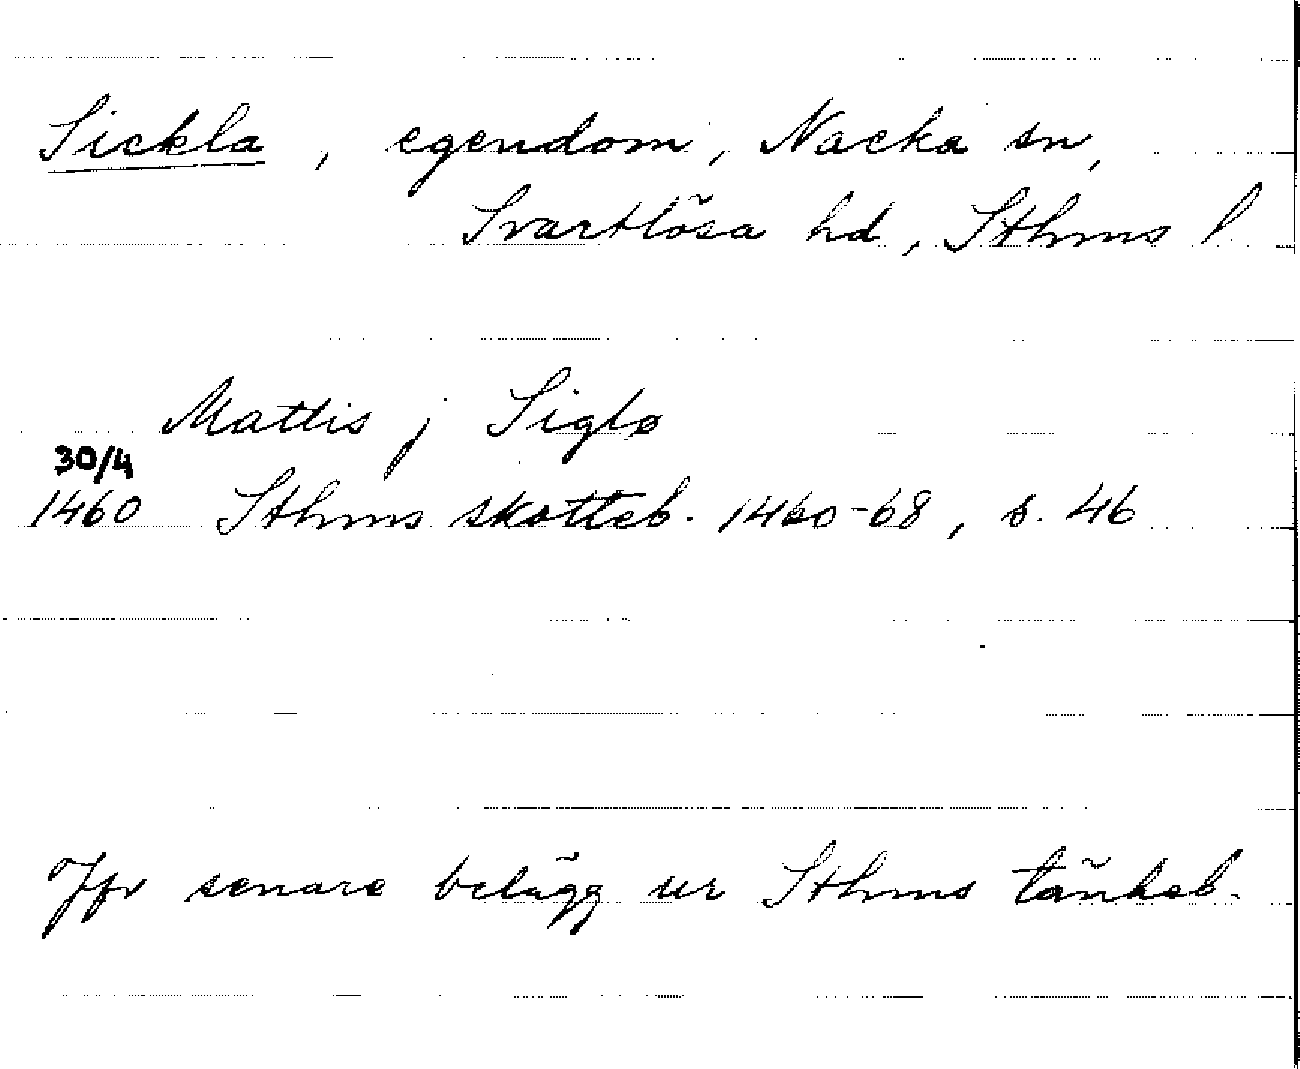 Sickla, egendom, Nacka sn,
Svartlösa hd, Sthms l
Mattis j Siglø
30/4
1460 Sthms skotteb. 1460-68, s. 46
Jfr senare belägg ur Sthms tänkeb.